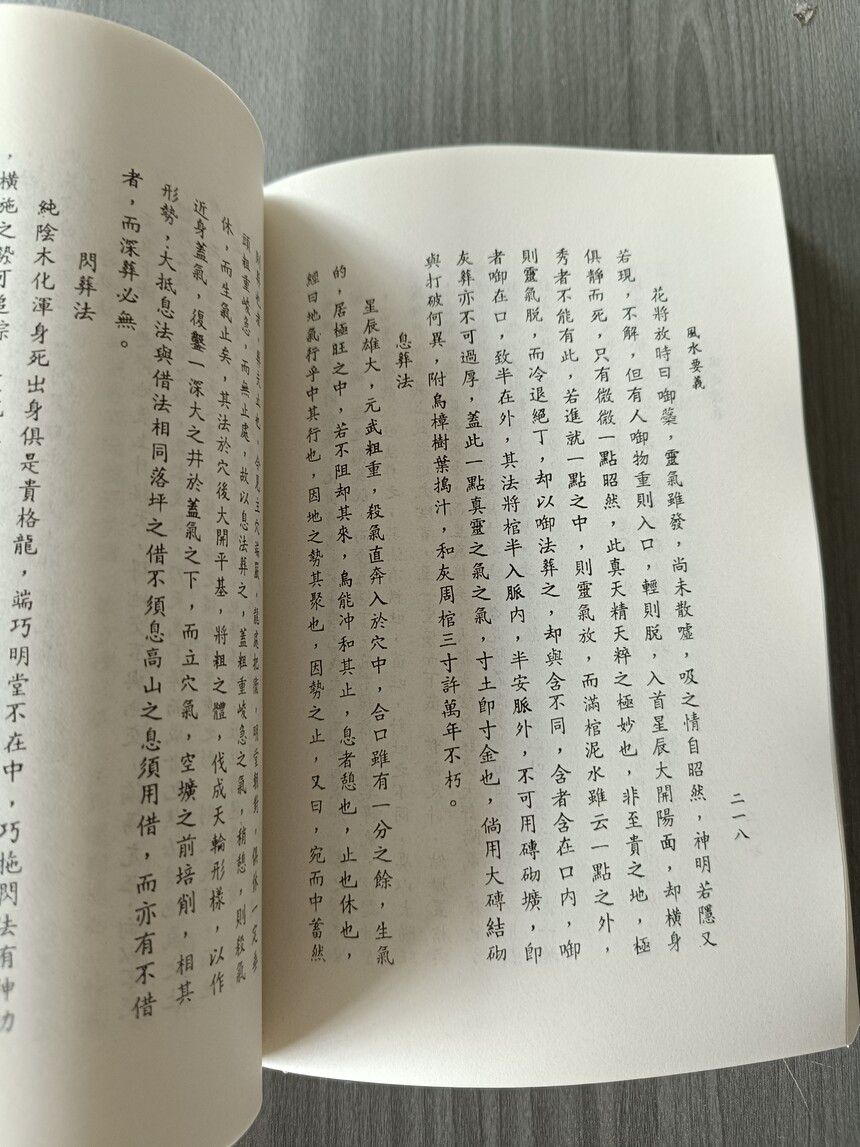 風水要義
二一八
花將放時曰啣蘂，靈氣雖發，尚未散噓，吸之情自昭然，神明若隱又
若現，不解，但有人啣物重則入口，輕則脫，入首星辰大開陽面，却橫身
俱靜而死，只有微微一點昭然，此真天精天粹之極妙也，非至貴之地，極
秀者不能有此，若進就一點之中，則靈氣放，而滿棺泥水雖云一點之外，
則靈氣脫，而冷退絕丁，却以啣法葬之，却與含不同，含者含在口內，啣
者啣在口，致半在外，其法將棺半入脈內，半安脈外，不可用磚砌壙，卽
灰葬亦不可過厚，蓋此一點真靈之氣之氣，寸土卽寸金也，倘用大磚結砌
與打破何異，附烏樟樹葉搗汁，和灰周棺三寸許萬年不朽。
息葬法
星辰雄大，元武粗重，殺氣直奔入於穴中，合口雖有一分之餘，生氣
的，居極旺之中，若不阻却其來，烏能冲和其止，息者憩也，止也休也，
經曰地氣行乎中其行也，因地之勢其聚也，因勢之止，又曰，宛而中蓄然
頭粗重峻急，而無止處，故以息法葬之，蓋粗重峻急之氣，稍憩，則殺氣
休，而生氣止矣，其法於穴後大開平基，將粗之體，伐成天輪形樣，以作
近身蓋氣，復鑿一深大之井於蓋氣之下，而立穴氣，空壙之前培削，相其
形勢，大抵息法與借法相同落坪之借不須息高山之息須用借，而亦有不借
者，而深葬必無。
閃葬法
純陰木化渾身死出身俱是貴格龍，端巧明堂不在中，巧拖閃法有神功
，橫施之勢可追宗